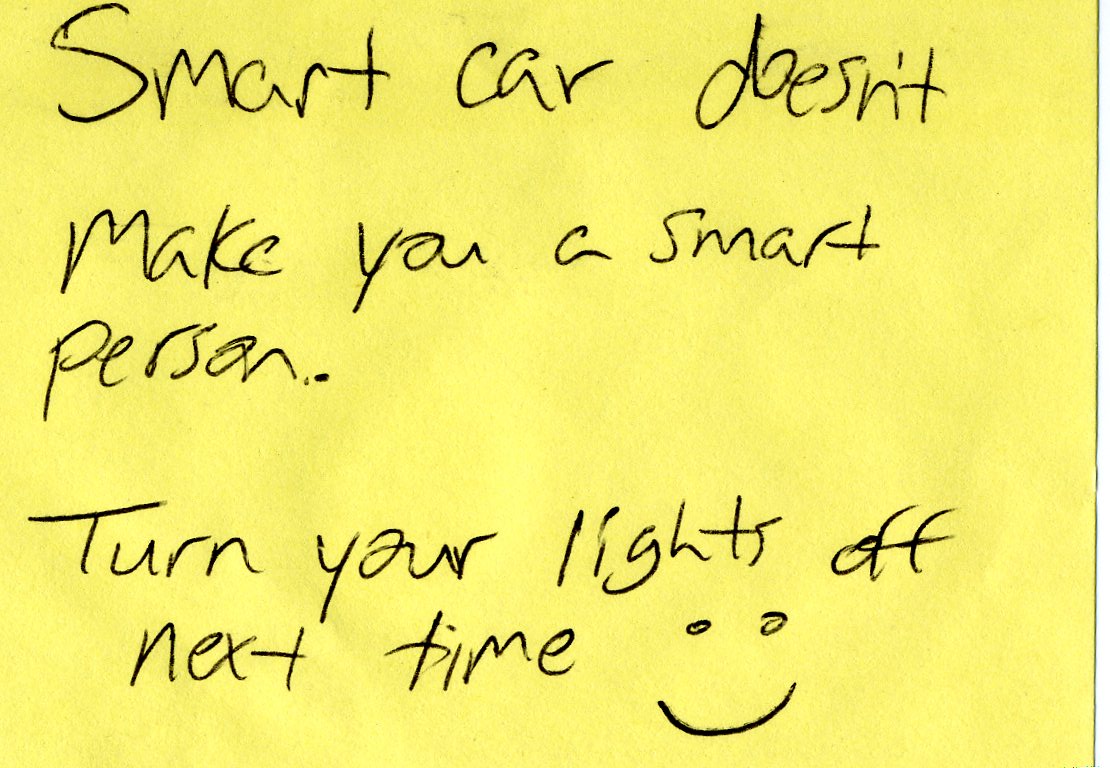 Smart car doesn't
Make you a smart
person..
Turn your lights off
next time